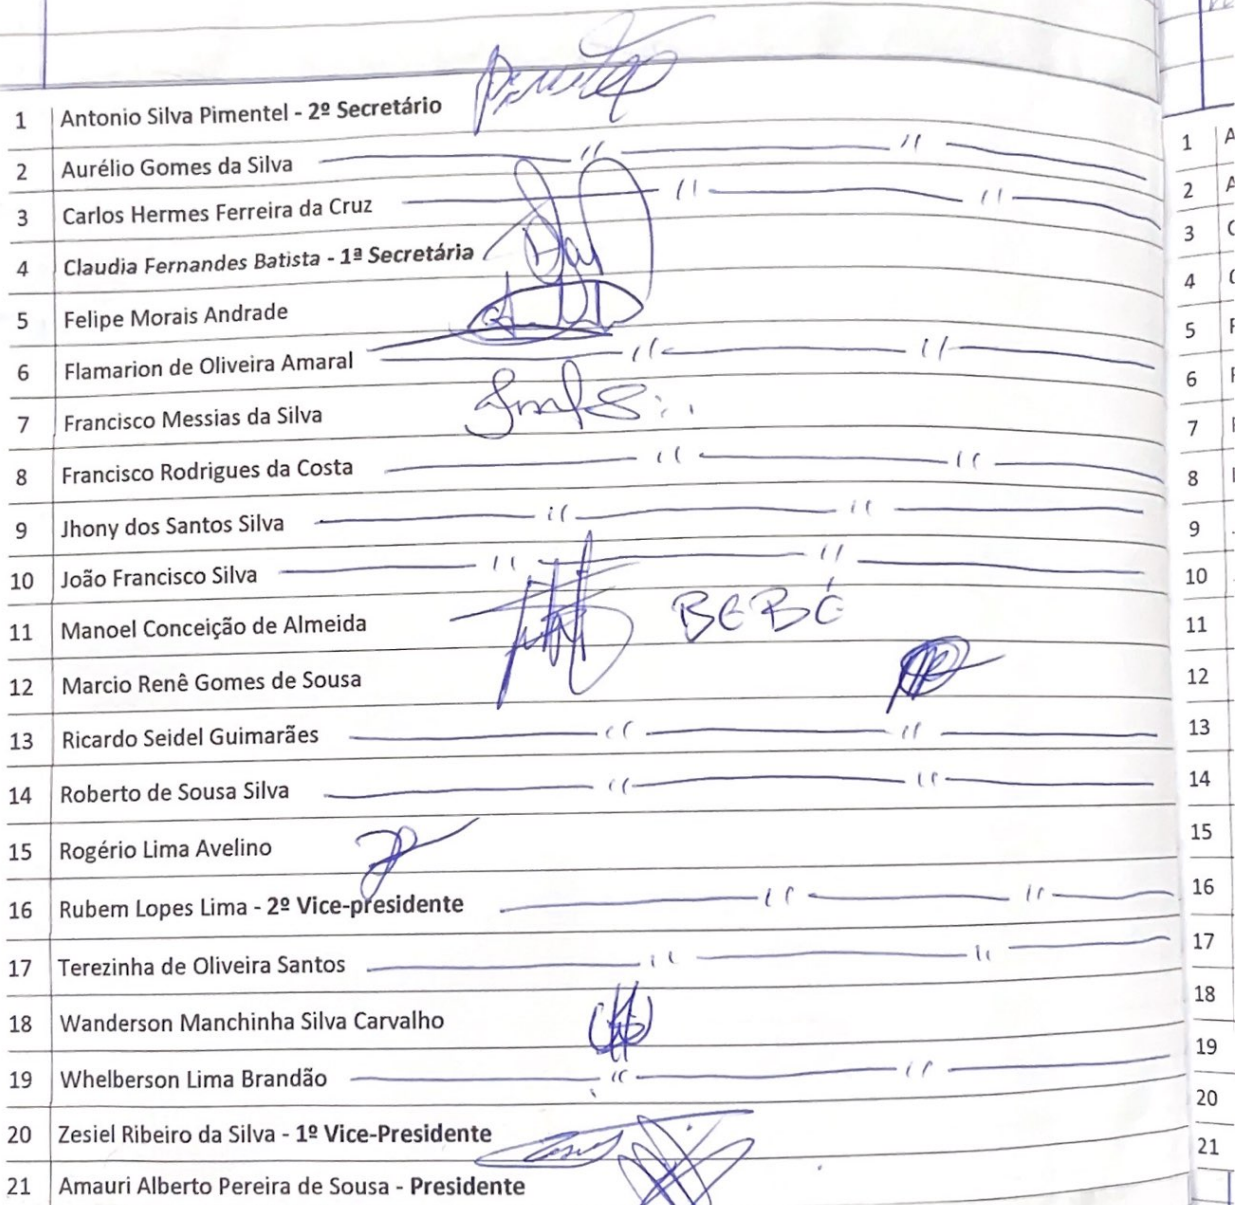 1 Antonio Silva Pimentel - 2º Secretário
2 Aurélio Gomes da Silva
3 Carlos Hermes Ferreira da Cruz
4 Claudia Fernandes Batista - 1ª Secretária
5 Felipe Morais Andrade
6 Flamarion de Oliveira Amaral
7 Francisco Messias da Silva
8 Francisco Rodrigues da Costa
9 Jhony dos Santos Silva
10 João Francisco Silva
11 Manoel Conceição de Almeida BEBÉ
12 Marcio Renê Gomes de Sousa
13 Ricardo Seidel Guimarães
14 Roberto de Sousa Silva
15 Rogério Lima Avelino
16 Rubem Lopes Lima - 2º Vice-presidente
17 Terezinha de Oliveira Santos
18 Wanderson Manchinha Silva Carvalho
19 Whelberson Lima Brandão
20 Zesiel Ribeiro da Silva - 1º Vice-Presidente
21 Amauri Alberto Pereira de Sousa - Presidente
1 A
2 A
3 C
4 C
5 F
6 F
7 F
8
9
10
11
12
13
14
15
16
17
18
19
20
21